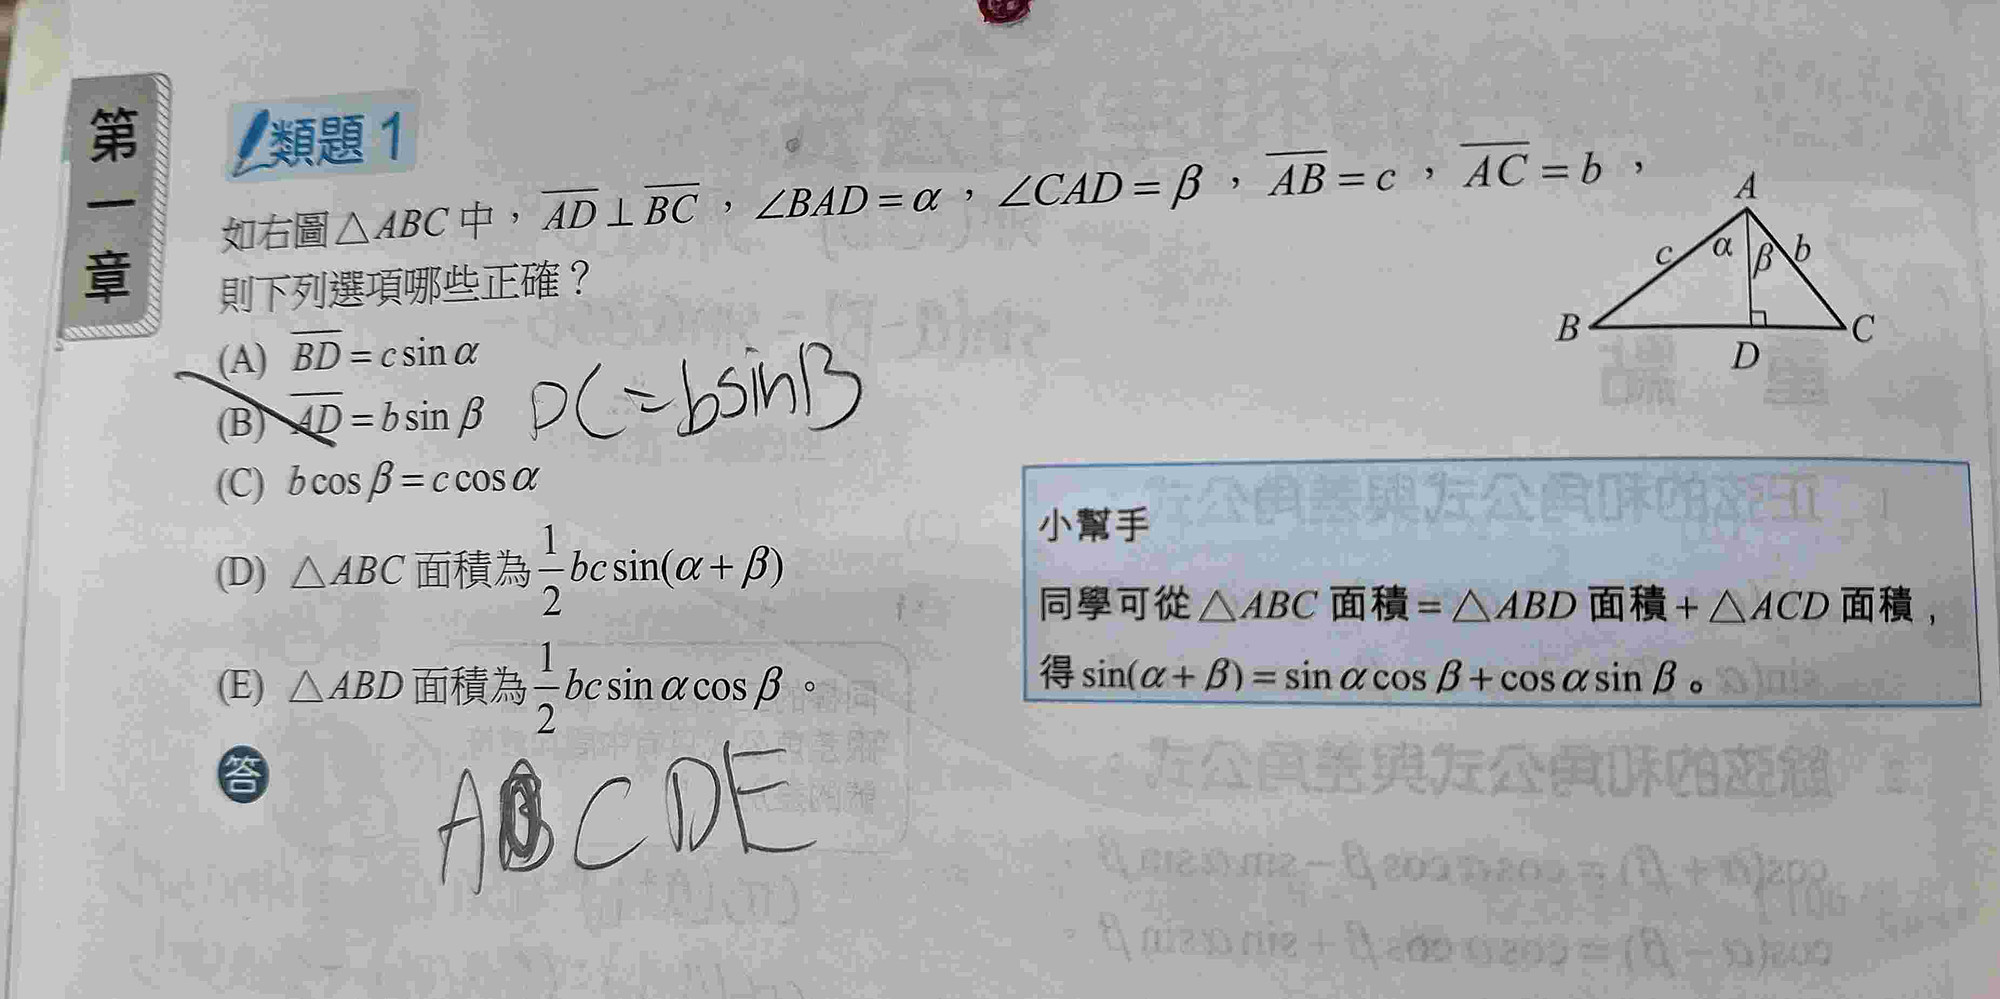 第一章
類題1
如右圖△ABC中，AD⊥BC，∠BAD=α，∠CAD=β，AB=c，AC=b，
則下列選項哪些正確？
(A) BD=c sin α
(B) AD=b sin β DC=bsinβ
(C) b cos β=c cos α
(D) △ABC 面積為 1/2 bc sin(α+β)
(E) △ABD 面積為 1/2 bc sin α cos β。
答
ABCDE
A
c α β b
B D C
小幫手
同學可從△ABC 面積=△ABD 面積+△ACD 面積，
得 sin(α+β)=sin α cos β+cos α sin β。